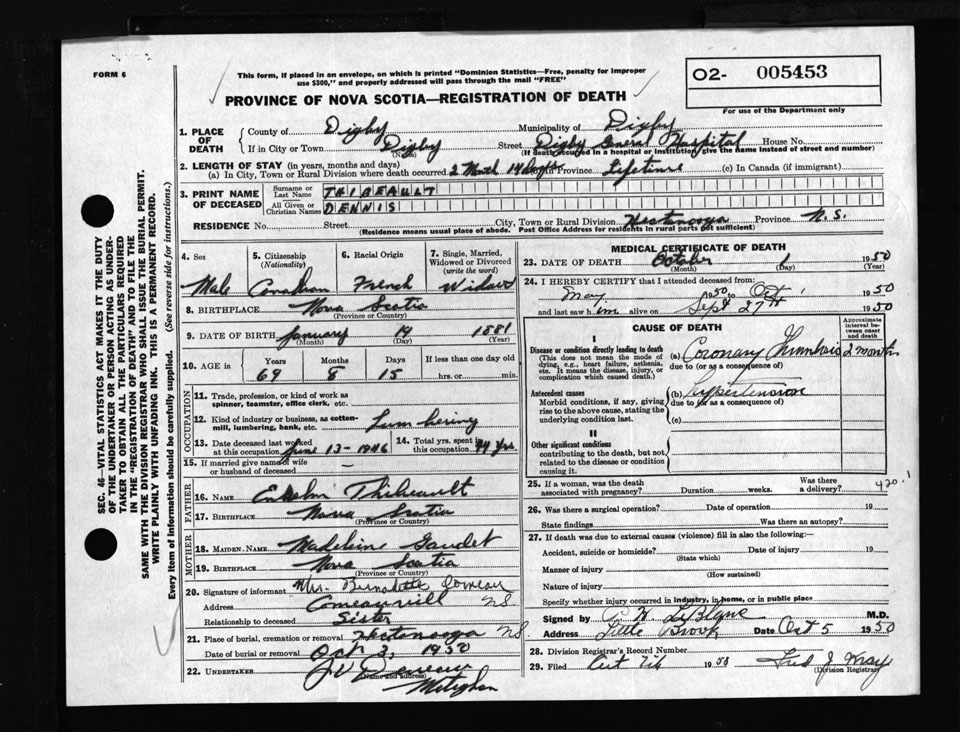 FORM 6
This form, if placed in an envelope, on which is printed "Dominion Statistics—Free, penalty for improper
use $300," and properly addressed will pass through the mail "FREE"
O2- 005453
For use of the Department only
PROVINCE OF NOVA SCOTIA—REGISTRATION OF DEATH
1. PLACE OF DEATH County of Digby Municipality of Digby
If in City or Town Digby (Name) Street Digby General Hospital House No.
(If death occurred in a hospital or institution, give the name instead of street and number)
2. LENGTH OF STAY (in years, months and days)
(a) In City, Town or Rural Division where death occurred 2 Month 14 days In Province Lifetime (c) In Canada (if immigrant)
3. PRINT NAME OF DECEASED Surname or Last Name THIBEAULT
All Given or Christian Names DENNIS
RESIDENCE No. Street City, Town or Rural Division Hectanooga Province N.S.
(Residence means usual place of abode. Post Office Address for residents in rural parts not sufficient)
4. Sex 5. Citizenship (Nationality) 6. Racial Origin 7. Single, Married, Widowed or Divorced (write the word)
Male Canadian French Widower
8. BIRTHPLACE Nova Scotia
(Province or Country)
9. DATE OF BIRTH January 19 1881
(Month) (Day) (Year)
10. AGE in Years Months Days If less than one day old
69 8 15 hrs. or min.
OCCUPATION
11. Trade, profession, or kind of work as spinner, teamster, office clerk, etc.
12. Kind of industry or business, as cotton-mill, lumbering, bank, etc. Lumbering
13. Date deceased last worked at this occupation June 13-1946 14. Total yrs. spent in this occupation 44 yrs
15. If married give name of wife or husband of deceased —
FATHER
16. NAME Thibeault
17. BIRTHPLACE Nova Scotia
(Province or Country)
MOTHER
18. MAIDEN NAME Madeleine Gaudet
19. BIRTHPLACE Nova Scotia
(Province or Country)
20. Signature of informant Mrs. Bernadette Comeau
Address Comeauville NS
Relationship to deceased Sister
21. Place of burial, cremation or removal Hectanooga NS
Date of burial or removal Oct 3, 1950
22. UNDERTAKER
(Name and address)
Meteghan
MEDICAL CERTIFICATE OF DEATH
23. DATE OF DEATH October 1 1950
(Month) (Day) (Year)
24. I HEREBY CERTIFY that I attended deceased from:
May 1950 to Oct 1 1950
and last saw him alive on Sept 27th 1950
CAUSE OF DEATH
Approximate interval between onset and death
I
Disease or condition directly leading to death (a) Coronary Thrombosis 2 month
(This does not mean the mode of dying, e.g., heart failure, asthenia, etc. It means the disease, injury, or complication which caused death.)
due to (or as a consequence of)
Antecedent causes (b) Hypertension
Morbid conditions, if any, giving rise to the above cause, stating the underlying condition last.
due to (or as a consequence of)
(c)
II
Other significant conditions
contributing to the death, but not related to the disease or condition causing it.
420.1
25. If a woman, was the death associated with pregnancy? Duration weeks. Was there a delivery?
26. Was there a surgical operation? Date of operation 19
State findings Was there an autopsy?
27. If death was due to external causes (violence) fill in also the following:—
Accident, suicide or homicide? Date of injury 19
(State which)
Manner of injury
(How sustained)
Nature of injury
Specify whether injury occurred in industry, in home, or in public place
Signed by LeBlanc M.D.
Address Little Brook Date Oct 5 1950
28. Division Registrar's Record Number
29. Filed Oct 7th 1950 Fred J Wray
(Division Registrar)
SEC. 46—VITAL STATISTICS ACT MAKES IT THE DUTY
OF THE UNDERTAKER OR PERSON ACTING AS UNDER-
TAKER TO OBTAIN ALL THE PARTICULARS REQUIRED
IN THE "REGISTRATION OF DEATH" AND TO FILE THE
SAME WITH THE DIVISION REGISTRAR WHO SHALL ISSUE THE BURIAL PERMIT.
WRITE PLAINLY WITH UNFADING INK. THIS IS A PERMANENT RECORD.
Every item of information should be carefully supplied. (See reverse side for instructions.)